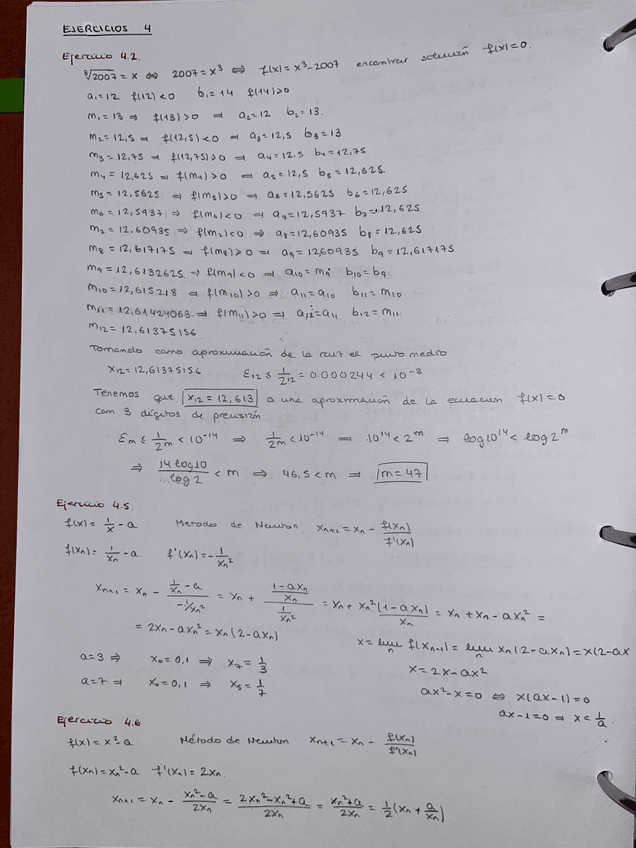 EJERCICIOS 4
Ejercicio 4.2.
∛2007 = x ⇔ 2007 = x³ ⇔ f(x) = x³-2007 encontrar solución f(x)=0.
a₁=12 f(12)<0 b₁=14 f(14)>0
m₁=13 ⇒ f(13)>0 ⇒ a₂=12 b₂=13.
m₂=12,5 ⇒ f(12,5)<0 ⇒ a₃=12,5 b₃=13
m₃=12,75 ⇒ f(12,75)>0 ⇒ a₄=12.5 b₄=12,75
m₄=12,625 ⇒ f(m₄)>0 ⇒ a₅=12,5 b₅=12,625.
m₅=12,5625 ⇒ f(m₅)>0 ⇒ a₆=12,5625 b₆=12,625
m₆=12,5937 ⇒ f(m₆)<0 ⇒ a₇=12,5937 b₇=12,625
m₇=12,60935 ⇒ f(m₇)<0 ⇒ a₈=12,60935 b₈=12,625
m₈=12,617175 ⇒ f(m₈)>0 ⇒ a₉=12,60935 b₉=12,617175
m₉=12,6132625 ⇒ f(m₉)<0 ⇒ a₁₀=m₉ b₁₀=b₉
m₁₀=12,615218 ⇒ f(m₁₀)>0 ⇒ a₁₁=a₁₀ b₁₁=m₁₀
m₁₁=12,61424063 ⇒ f(m₁₁)>0 ⇒ a₁₂=a₁₁ b₁₂=m₁₁
m₁₂=12.61375156
Tomando como aproximación de la raíz el punto medio
x₁₂=12,61375156 ε₁₂ ≤ 1/2¹² = 0.000244 < 10⁻³
Tenemos que x₁₂=12,613 a una aproximación de la ecuación f(x)=0
con 3 dígitos de precisión
εm ≤ 1/2ᵐ < 10⁻¹⁴ ⇒ 1/2ᵐ < 10⁻¹⁴ ⇒ 10¹⁴ < 2ᵐ ⇒ log10¹⁴ < log2ᵐ
⇒ 14 log10 / log 2 < m ⇒ 46,5 < m ⇒ m=47
Ejercicio 4.5.
f(x) = 1/x - a Metodo de Newton xₙ₊₁ = xₙ - f(xₙ)/f'(xₙ)
f(xₙ) = 1/xₙ - a f'(xₙ) = -1/xₙ²
xₙ₊₁ = xₙ - (1/xₙ - a)/(-1/xₙ²) = xₙ + ((1-axₙ)/xₙ)/(1/xₙ²) = xₙ + xₙ²(1-axₙ)/xₙ = xₙ + xₙ - axₙ² =
= 2xₙ - axₙ² = xₙ(2-axₙ)
x = lim n f(xₙ₋₁) = lim n xₙ(2-axₙ) = x(2-ax
a=3 ⇒ x₀=0,1 ⇒ x₇=1/3
x=2x-ax²
a=7 ⇒ x₀=0,1 ⇒ x₅=1/7
ax²-x=0 ⇔ x(ax-1)=0
ax-1=0 ⇒ x=1/a
Ejercicio 4.6
f(x) = x²-a Método de Newton xₙ₊₁ = xₙ - f(xₙ)/f'(xₙ)
f(xₙ) = xₙ²-a f'(xₙ) = 2xₙ.
xₙ₊₁ = xₙ - (xₙ²-a)/2xₙ = (2xₙ²-xₙ²+a)/2xₙ = (xₙ²+a)/2xₙ = 1/2(xₙ + a/xₙ)